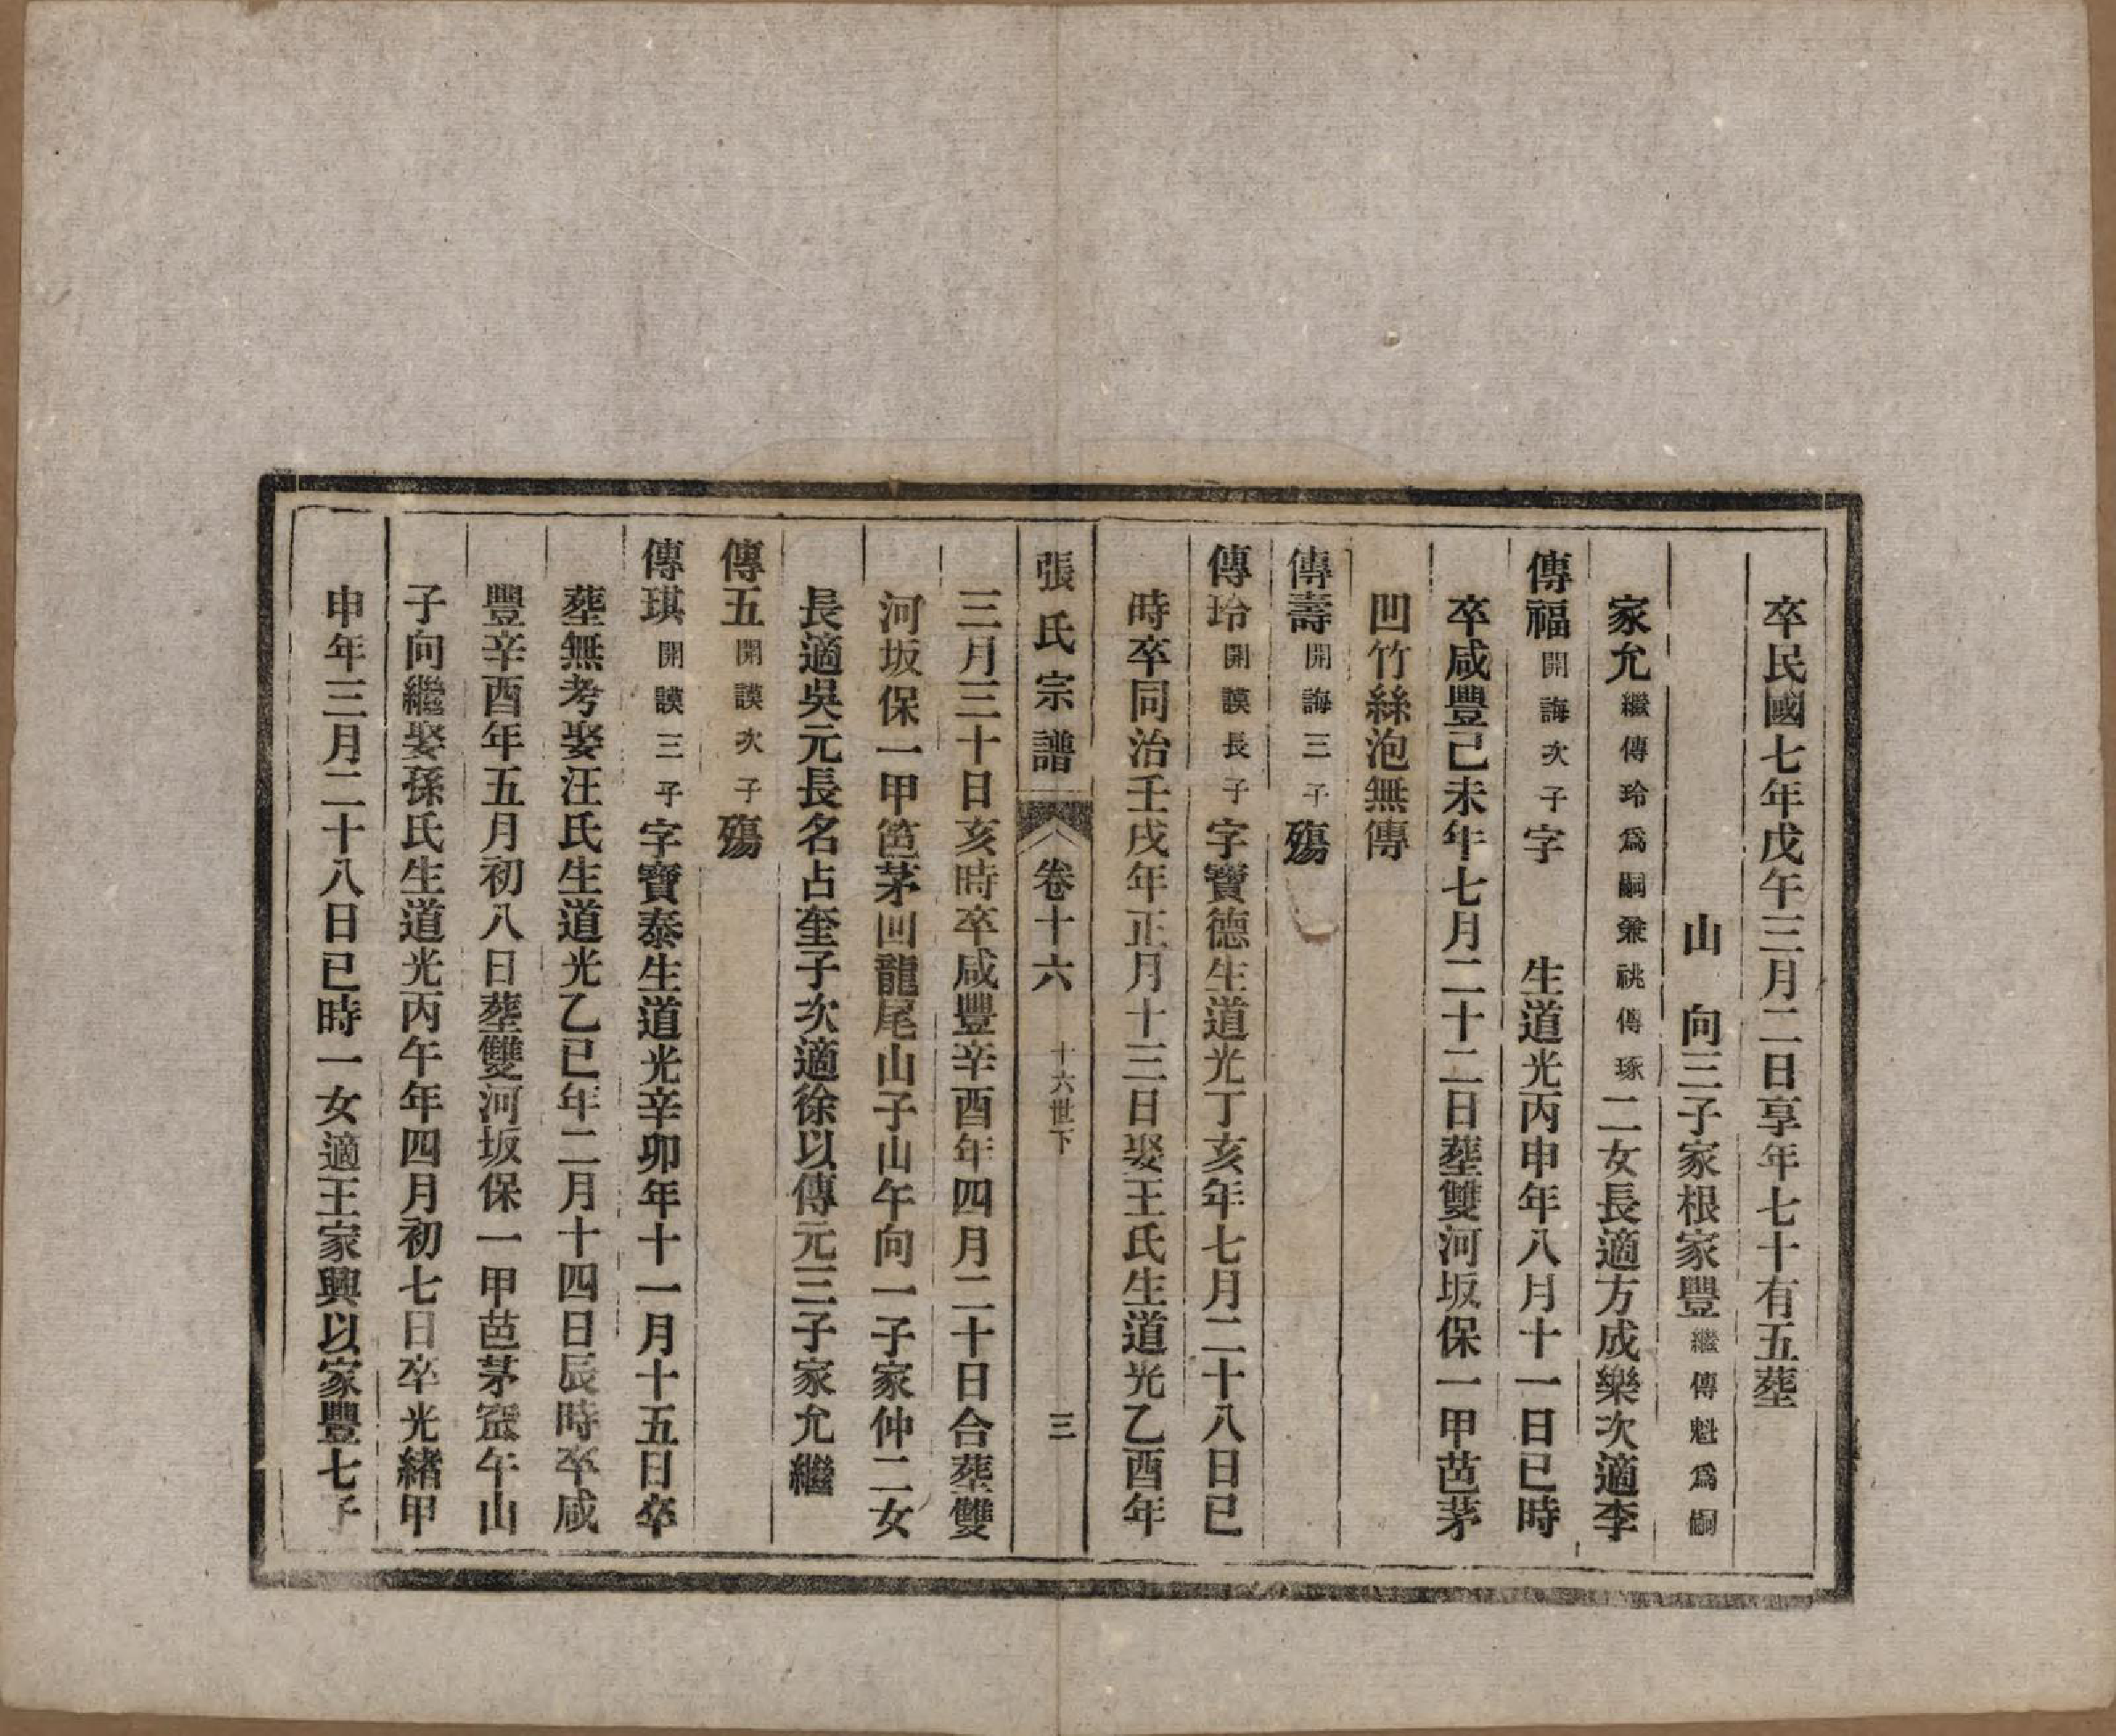 卒民國七年戊午三月二日享年七十有五葬
山　向三子家根家豐繼傳魁爲嗣
家允繼傳玲爲嗣兼祧傳琢二女長適方成樂次適李
傳福開誨次子字　生道光丙申年八月十一日巳時
卒咸豐己未年七月二十二日葬雙河坂保一甲芭茅
凹竹絲泡無傳
傳壽開誨三子殤
傳玲開謨長子字寶德生道光丁亥年七月二十八日巳
時卒同治壬戌年正月十三日娶王氏生道光乙酉年
張氏宗譜　卷十六　十六世下　三
三月三十日亥時卒咸豐辛酉年四月二十日合葬雙
河坂保一甲笆茅回龍尾山子山午向一子家仲二女
長適吳元長名占奎子次適徐以傳元三子家允繼
傳五開謨次子殤
傳琪開謨三子字寶泰生道光辛卯年十一月十五日卒
葬無考娶汪氏生道光乙巳年二月十四日辰時卒咸
豐辛酉年五月初八日葬雙河坂保一甲芭茅窊午山
子向繼娶孫氏生道光丙午年四月初七日卒光緒甲
申年三月二十八日巳時一女適王家興以家豐七子